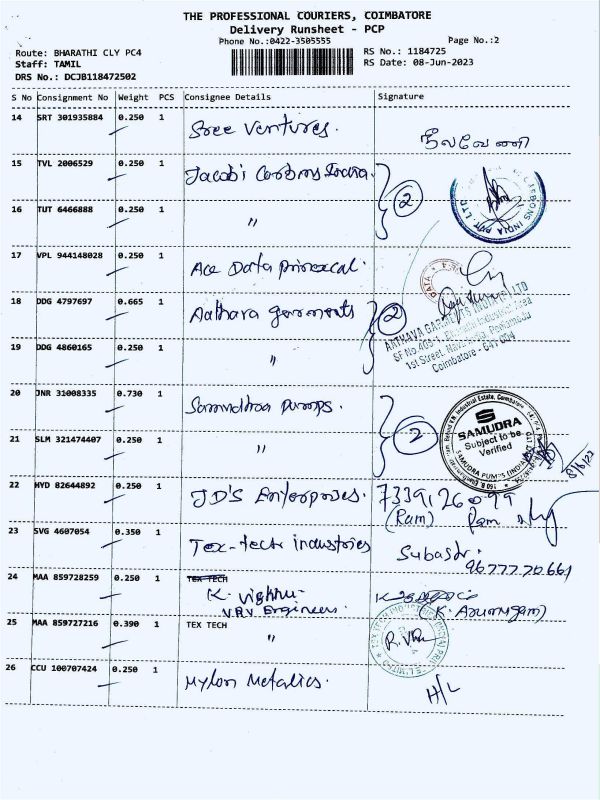 THE PROFESSIONAL COURIERS, COIMBATORE
Delivery Runsheet - PCP
Phone No.:0422-3505555 Page No.:2
Route: BHARATHI CLY PC4 RS No.: 1184725
Staff: TAMIL RS Date: 08-Jun-2023
DRS No.: DCJB118472502
S No Consignment No Weight PCS Consignee Details Signature
14 SRT 301935884 0.250 1 Sree Ventures.
நீலவேணி
15 TVL 2006529 0.250 1 Jacobi Carbons India. 2
16 TUT 6466888 0.250 1 "
17 VPL 944148028 0.250 1 Ace Data
18 DDG 4797697 0.665 1 Aathava garments 2
AATHAVA GARMENTS INDIA LTD
1st Street,
Coimbatore - 641 004
19 DDG 4860165 0.250 1 "
20 JNR 31008335 0.730 1 Samudhra pumps. 2
SAMUDRA
Subject to be
Verified
SAMUDRA PUMPS
21 SLM 321474407 0.250 1 "
22 HYD 82644892 0.250 1 JD'S Enterprises.
(Ram) Ram
23 SVG 4607054 0.350 1 Tex-tech industries
9677770661
24 MAA 859728259 0.250 1 TEX TECH
K. Vishnu
VRV Engineers. (K. Arumugam)
25 MAA 859727216 0.390 1 TEX TECH
"
26 CCU 100707424 0.250 1 Mylon Metalics.
H/L